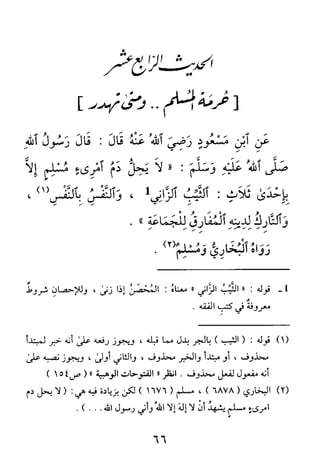 الحديث الرابع عشر
[ حُرمة المسلم .. ومتى تهدر ]
عَنِ ٱبْنِ مَسْعُودٍ رَضِيَ ٱللهُ عَنْهُ قَالَ : قَالَ رَسُولُ ٱللهِ
صَلَّى ٱللهُ عَلَيْهِ وَسَلَّمَ : « لَا يَحِلُّ دَمُ ٱمْرِىءٍ مُسْلِمٍ إِلَّا
بِإِحْدَىٰ ثَلَاثٍ : ٱلثَّيِّبُ ٱلزَّانِي 1 ، وَٱلنَّفْسُ بِٱلنَّفْسِ (١) ،
وَٱلتَّارِكُ لِدِينِهِ ٱلْمُفَارِقُ لِلْجَمَاعَةِ » .
رَوَاهُ ٱلْبُخَارِيُّ وَمُسْلِمٌ (٢) .
1- قوله : « الثَّيِّبُ الزَّاني » معناهُ : المُحْصَنُ إذا زنىٰ ، وللإحصانِ شروطٌ
معروفةٌ في كتبِ الفقهِ .
(١) قوله : ( الثيب ) بالجر بدل مما قبله ، ويجوز رفعه علىٰ أنه خبر لمبتدأ
محذوف ، أو مبتدأ والخبر محذوف ، والثاني أولىٰ ، ويجوز نصبه علىٰ
أنه مفعول لفعل محذوف . انظر « الفتوحات الوهبية » ( ص ١٥٤ )
(٢) البخاري ( ٦٨٧٨ ) ، مسلم ( ١٦٧٦ ) لكن بزيادة فيه هي : ( لا يحل دم
امرىءٍ مسلمٍ يشهدُ أنْ لا إلهَ إلا اللهُ وأني رسول الله . . . ) .
٦٦